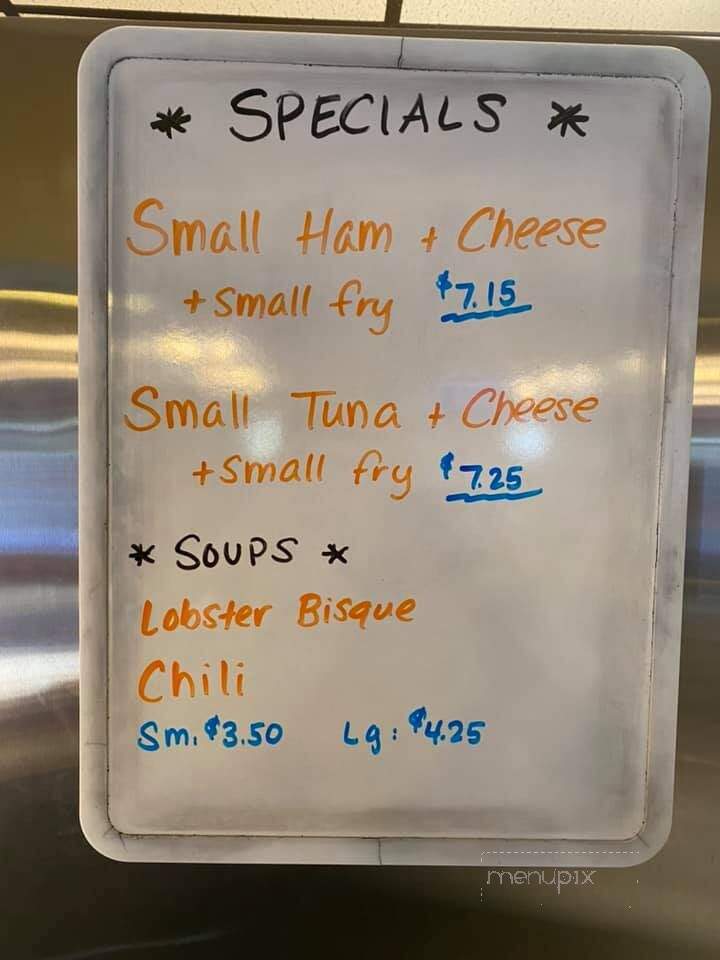 * SPECIALS *
Small Ham + Cheese
+ small fry $7.15
Small Tuna + Cheese
+ small fry $7.25
* SOUPS *
Lobster Bisque
Chili
Sm. $3.50 Lg: $4.25
menupix